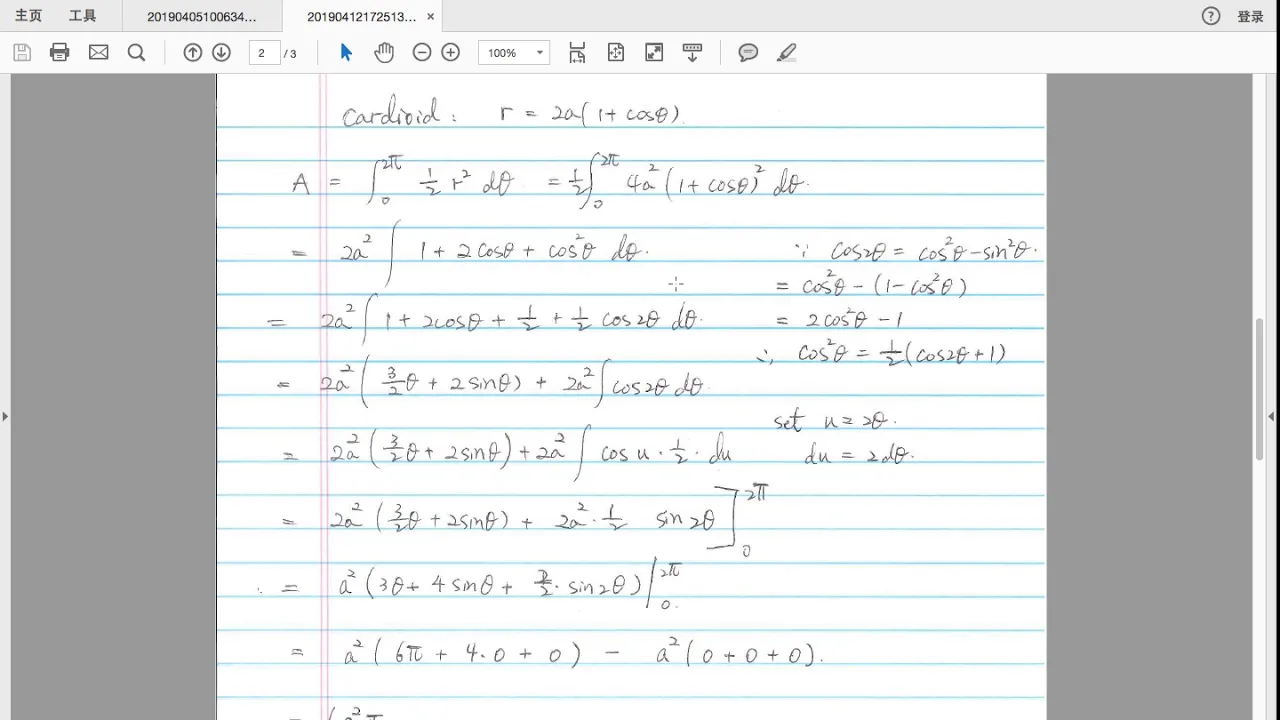 主页 工具 20190405100634... 20190412172513... × ? 登录
2 / 3 100%
Cardioid: r = 2a(1+cosθ).
A = ∫₀^{2π} 1/2 r² dθ = 1/2 ∫₀^{2π} 4a² (1+cosθ)² dθ.
= 2a² ∫ 1 + 2cosθ + cos²θ dθ. ∵ cos2θ = cos²θ - sin²θ.
= cos²θ - (1-cos²θ)
= 2a² ∫ 1 + 2cosθ + 1/2 + 1/2 cos2θ dθ. = 2cos²θ - 1
∴ cos²θ = 1/2 (cos2θ+1)
= 2a² (3/2 θ + 2sinθ) + 2a² ∫ cos2θ dθ.
set u = 2θ.
= 2a² (3/2 θ + 2sinθ) + 2a² ∫ cos u · 1/2 · du du = 2dθ.
= 2a² (3/2 θ + 2sinθ) + 2a² · 1/2 sin2θ ]₀^{2π}
= a² (3θ + 4sinθ + 2/2 · sin2θ) |₀^{2π}
= a² (6π + 4·0 + 0) - a² (0+0+0).